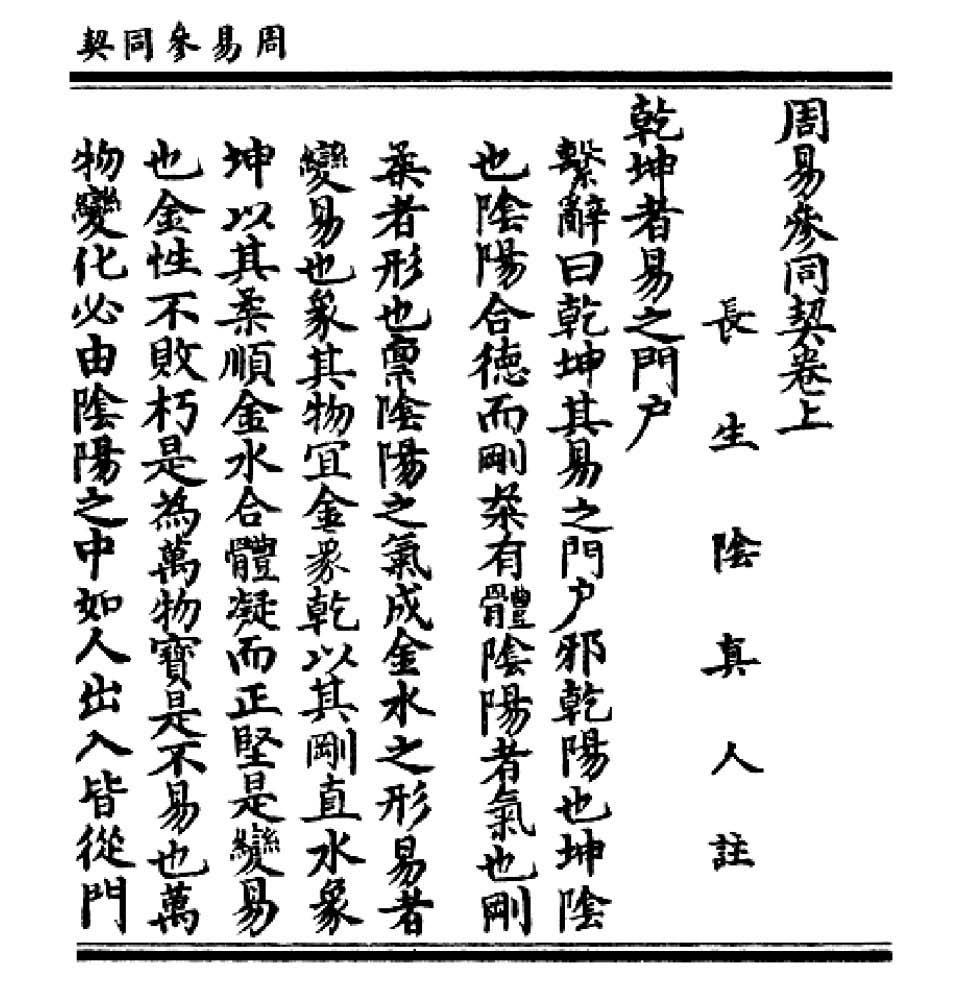 周易參同契
周易參同契卷上
長生陰真人註
乾坤者易之門户
繫辭曰乾坤其易之門户邪乾陽也坤陰
也陰陽合德而剛柔有體陰陽者氣也剛
柔者形也稟陰陽之氣成金水之形易者
變易也象其物宜金象乾以其剛直水象
坤以其柔順金水合體凝而正堅是變易
也金性不敗朽是為萬物寶是不易也萬
物變化必由陰陽之中如人出入皆從門